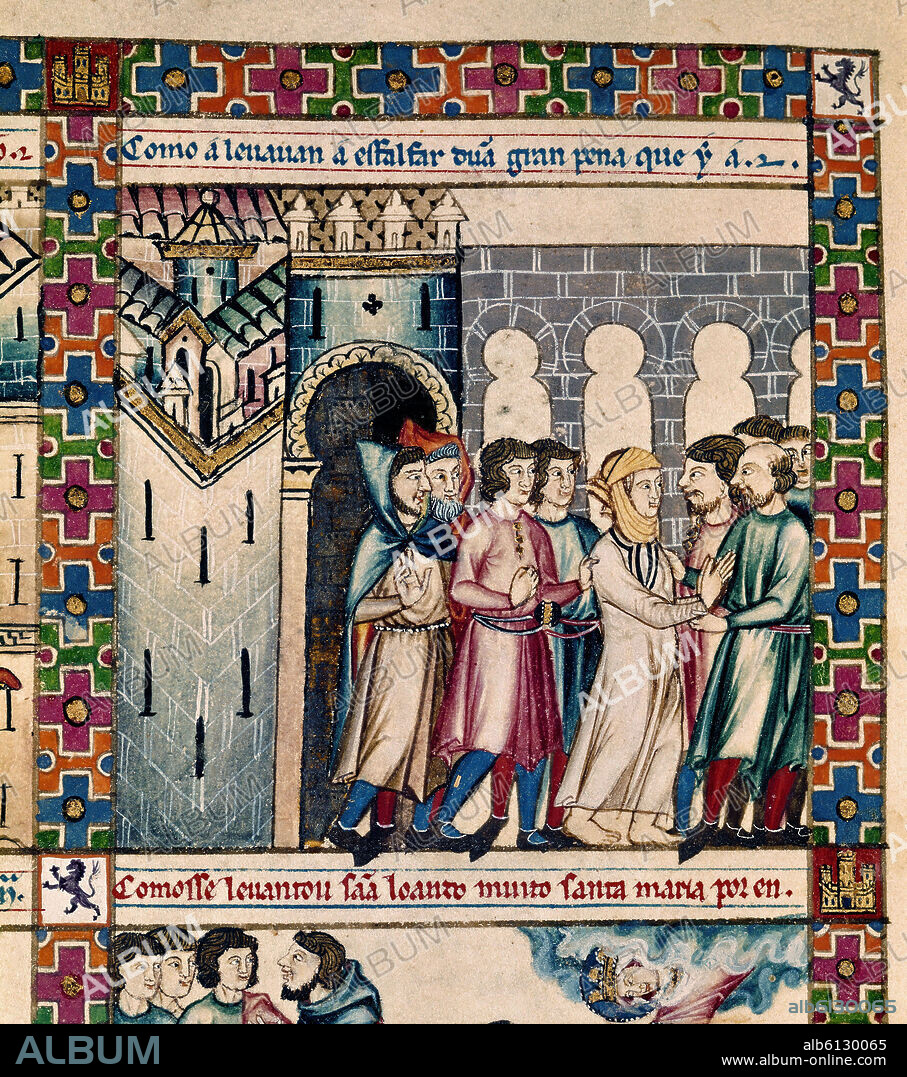 Como á leuauan a esfalfar dũa gran pena que ẏ á.
Comosse leuantou sãa loando muito santa maria por en.
ALBUM
alb6130065
ALBUM
alb6130065
www.album-online.com